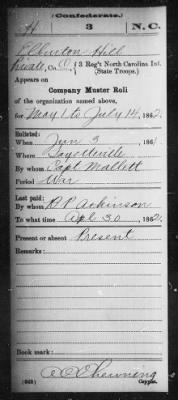 (Confederate.)
H 3 N.C.
Clinton Hill
Private, Co. { 3 Reg't North Carolina Inf.
(State Troops.)
Appears on
Company Muster Roll
of the organization named above,
for May 1 to July 14, 1862.
Enlisted:
When Jun 3, 1861
Where Fayetteville
By whom Capt Mallett
Period War
Last paid:
By whom B P Atkinson
To what time Apl 30, 1862.
Present or absent Present
Remarks:
Book mark:
Chewning
Copyist.